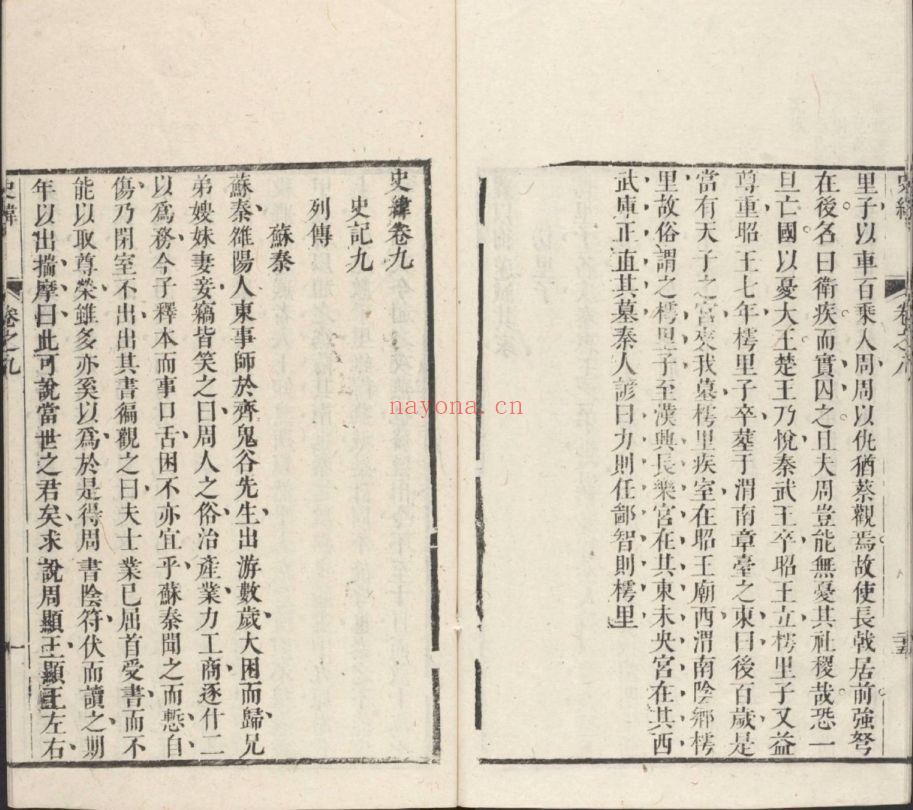 里子以車百乘入周周以仇猶蔡觀焉故使長戟居前強弩
在後名曰衛疾而實囚之且夫周豈能無憂其社稷哉恐一
旦亡國以憂大王楚王乃悅秦武王卒昭王立樗里子又益
尊重昭王七年樗里子卒葬于渭南章臺之東曰後百歲是
當有天子之宮夾我墓樗里疾室在昭王廟西渭南陰鄉樗
里故俗謂之樗里子至漢興長樂宮在其東未央宮在其西
武庫正直其墓秦人諺曰力則任鄙智則樗里
史緯
卷之八
二十五
史緯卷九
史記九
列傳
蘇秦
蘇秦雒陽人東事師於齊鬼谷先生出游數歲大困而歸兄
弟嫂妹妻妾竊皆笑之曰周人之俗治產業力工商逐什二
以爲務今子釋本而事口舌困不亦宜乎蘇秦聞之而慙自
傷乃閉室不出出其書徧觀之曰夫士業已屈首受書而不
能以取尊榮雖多亦奚以爲於是得周書陰符伏而讀之期
年以出揣摩曰此可說當世之君矣求說周顯王顯王左右
史緯
卷之九
一
nayona.cn